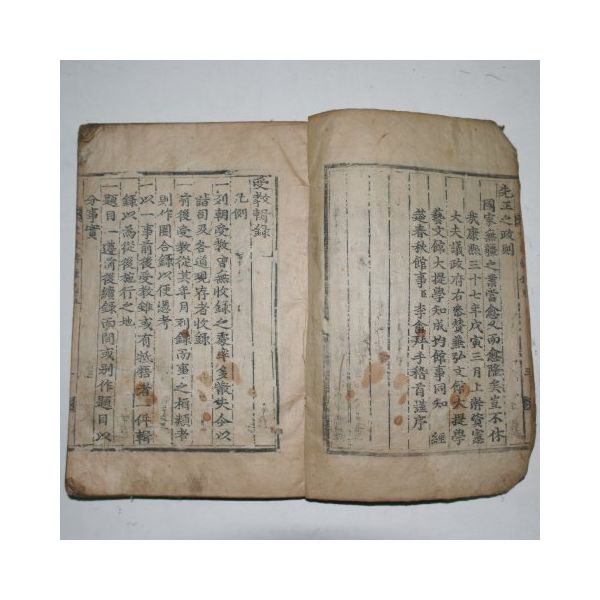 先王之政則
國家無疆之業當愈久而愈隆矣豈不休
哉康熙三十七年戊寅三月上澣資憲
大夫議政府右參贊兼弘文館大提學
藝文館大提學知成均館事同知 經
筵春秋館事臣李畬拜手稽首謹序
受教輯錄
凡例
一列朝受教曾無收錄之事率多散失今以
諸司及各道現存者收錄
一前後受教從其年月列錄而事之相類者
則作圈合錄以便憑考
一以一事前後受教雖或有抵牾者一倂輯
錄以爲從後施行之地
一題目一遵前後續錄而間或別作題目以
分事實